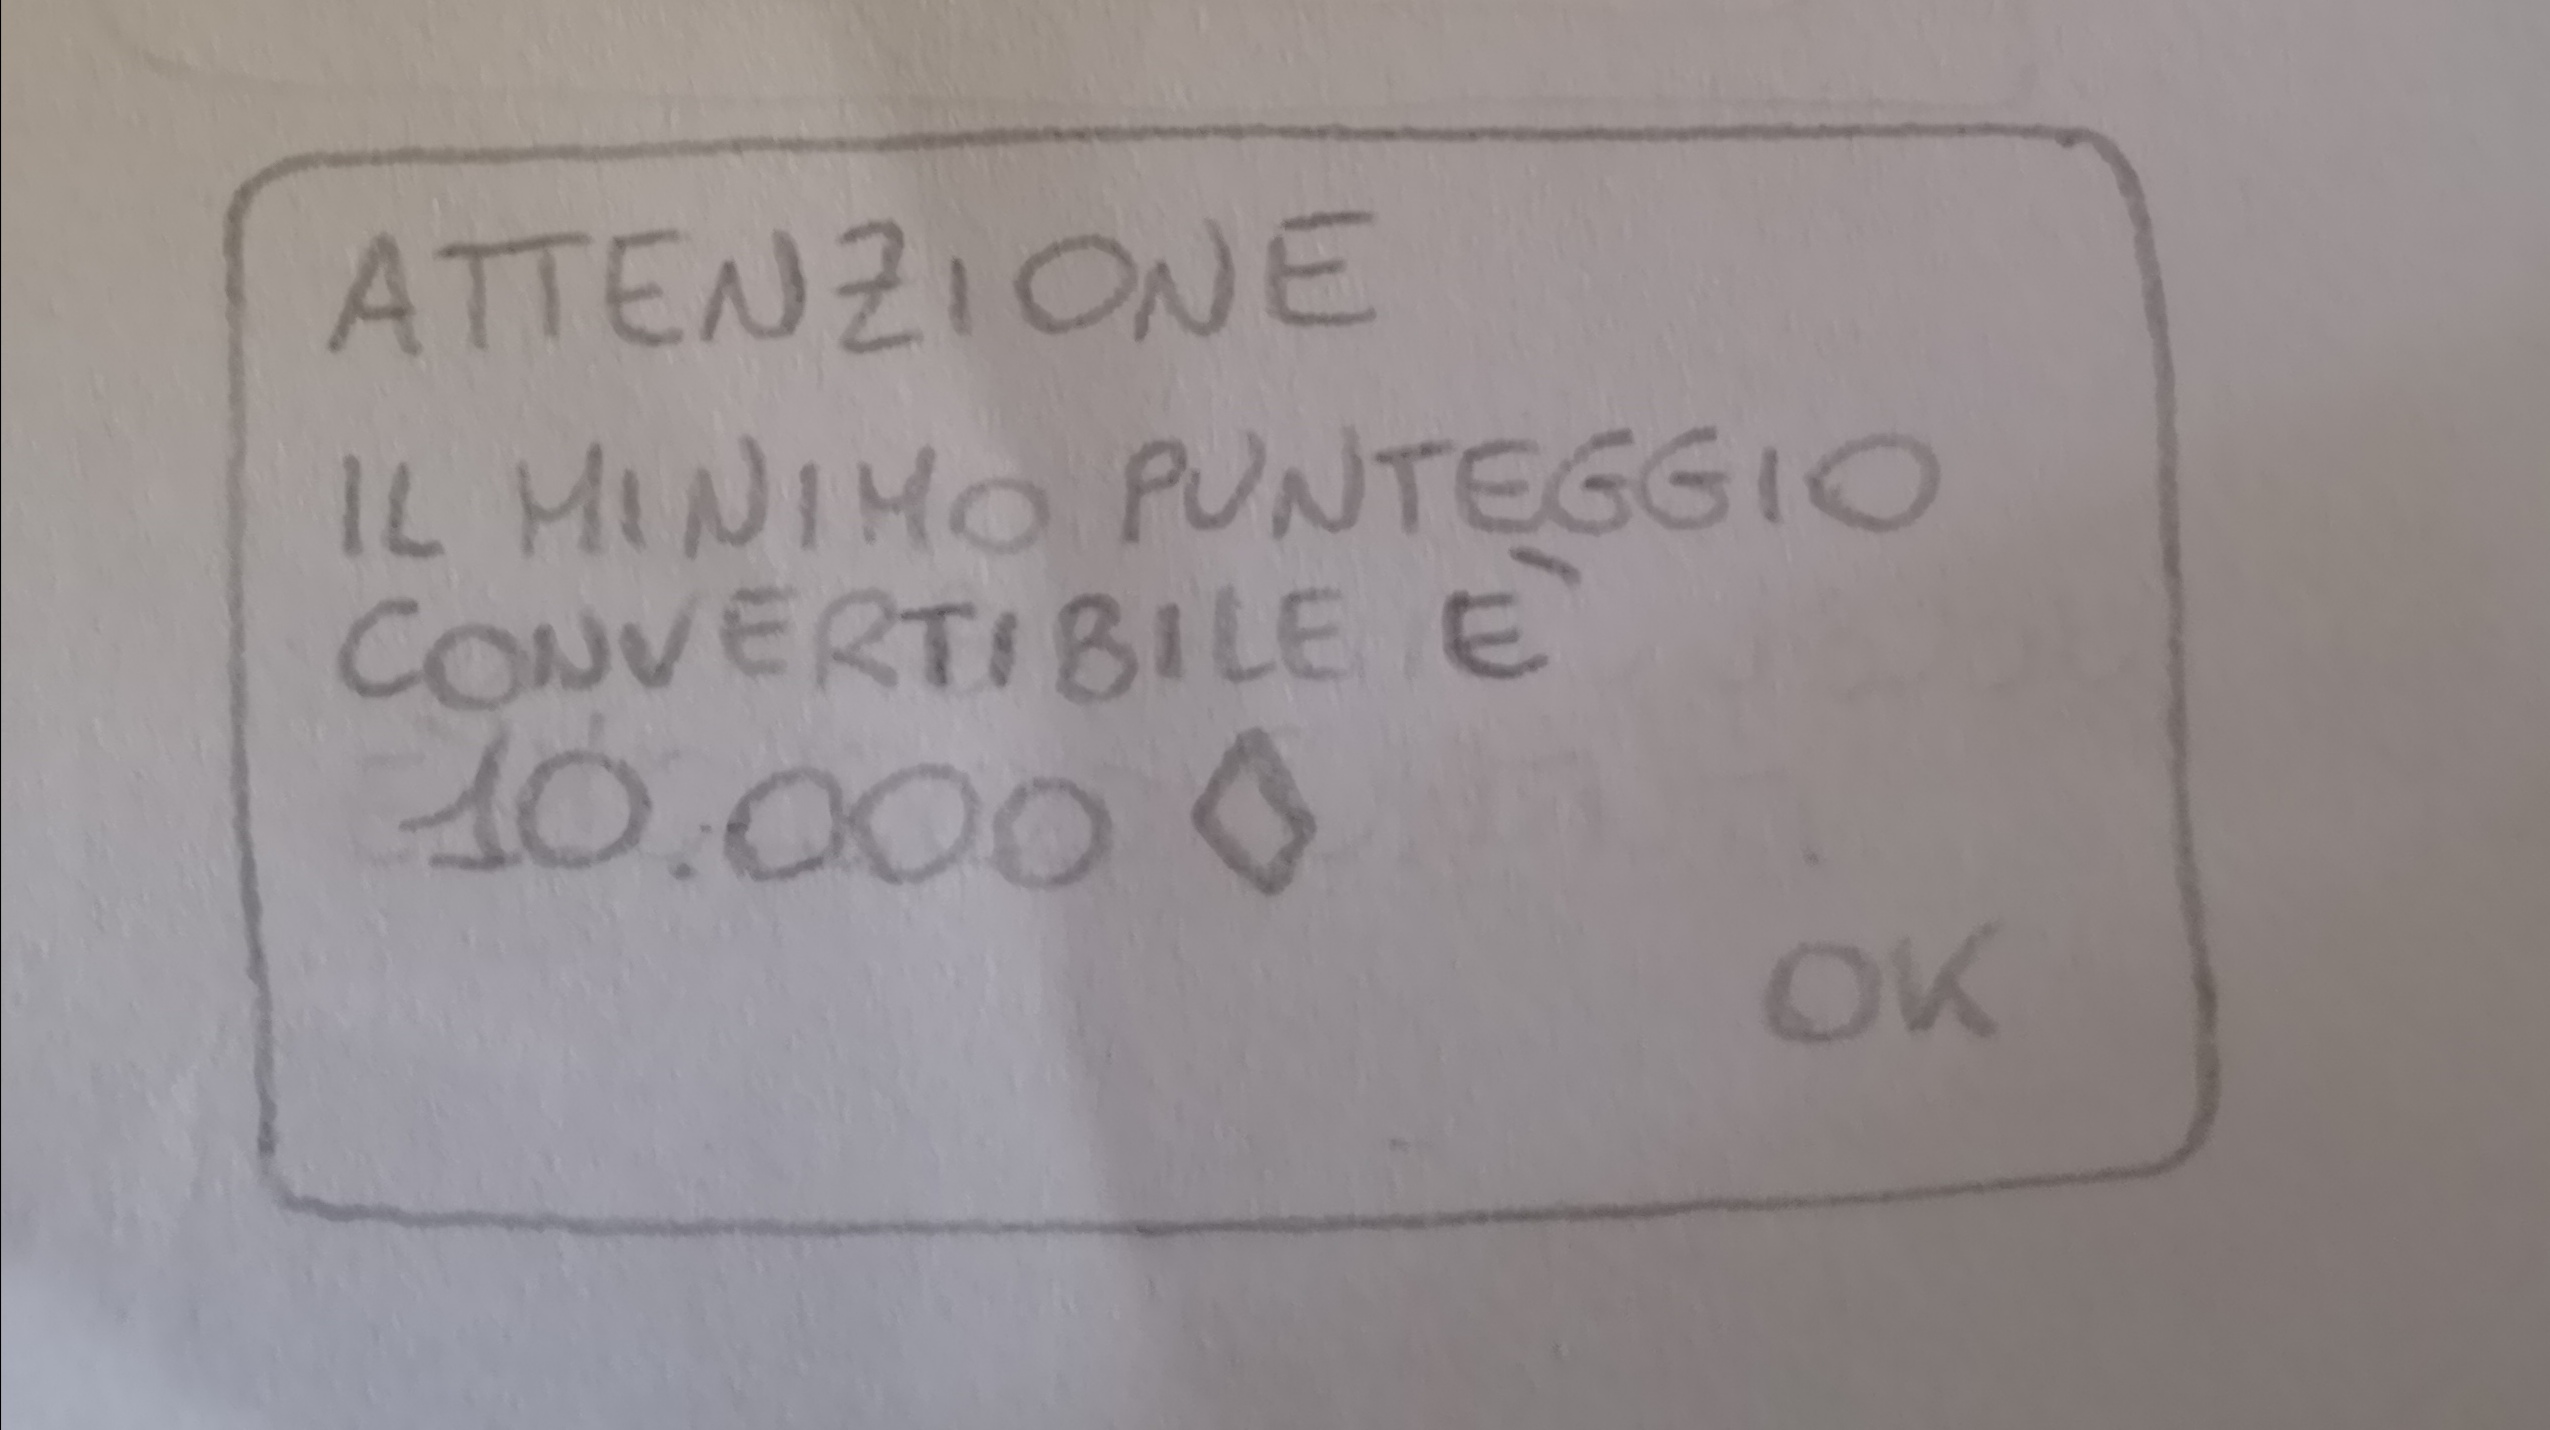 ATTENZIONE
IL MINIMO PUNTEGGIO
CONVERTIBILE È
10.000 ◊
OK